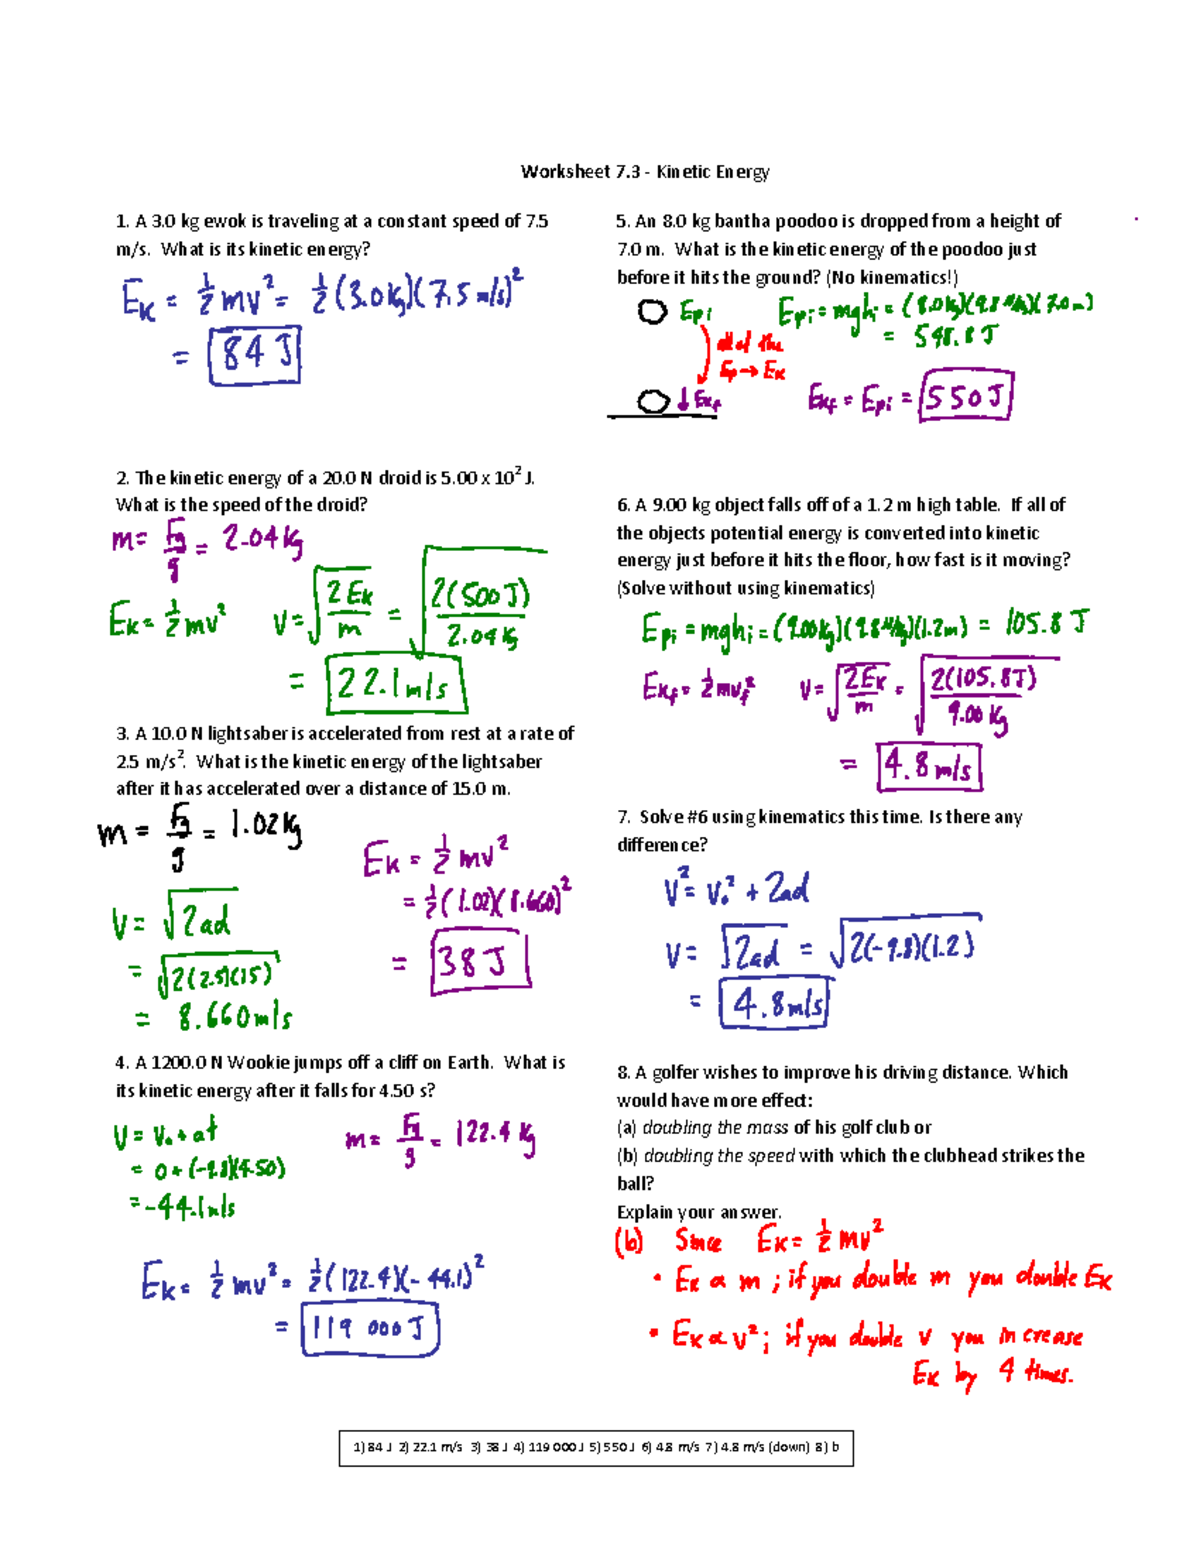 Worksheet 7.3 - Kinetic Energy
1. A 3.0 kg ewok is traveling at a constant speed of 7.5
m/s. What is its kinetic energy?
Ek = ½mv² = ½(3.0kg)(7.5 m/s)²
= 84 J
2. The kinetic energy of a 20.0 N droid is 5.00 x 10² J.
What is the speed of the droid?
m = Fg/g = 2.04 kg
Ek = ½mv² v = √(2Ek/m) = √(2(500J)/2.04 kg)
= 22.1 m/s
3. A 10.0 N lightsaber is accelerated from rest at a rate of
2.5 m/s². What is the kinetic energy of the lightsaber
after it has accelerated over a distance of 15.0 m.
m = Fg/g = 1.02 kg
v = √2ad
= √2(2.5)(15)
= 8.660 m/s
Ek = ½mv²
= ½(1.02)(8.660)²
= 38 J
4. A 1200.0 N Wookie jumps off a cliff on Earth. What is
its kinetic energy after it falls for 4.50 s?
v = v₀ + at
= 0 + (-9.8)(4.50)
= -44.1 m/s
m = Fg/g = 122.4 kg
Ek = ½mv² = ½(122.4)(-44.1)²
= 119 000 J
5. An 8.0 kg bantha poodoo is dropped from a height of
7.0 m. What is the kinetic energy of the poodoo just
before it hits the ground? (No kinematics!)
Epi
all of the
Ep → Ek
↓Ekf
Epi = mghi = (8.0kg)(9.8 N/kg)(7.0m)
= 548.8 J
Ekf = Epi = 550 J
6. A 9.00 kg object falls off of a 1.2 m high table. If all of
the objects potential energy is converted into kinetic
energy just before it hits the floor, how fast is it moving?
(Solve without using kinematics)
Epi = mghi = (9.00kg)(9.8 N/kg)(1.2m) = 105.8 J
Ekf = ½mvf² v = √(2Ek/m) = √(2(105.8J)/9.00 kg)
= 4.8 m/s
7. Solve #6 using kinematics this time. Is there any
difference?
v² = v₀² + 2ad
v = √2ad = √2(-9.8)(1.2)
= 4.8 m/s
8. A golfer wishes to improve his driving distance. Which
would have more effect:
(a) doubling the mass of his golf club or
(b) doubling the speed with which the clubhead strikes the
ball?
Explain your answer.
(b) Since Ek = ½mv²
• Ek α m ; if you double m you double Ek
• Ek α v² ; if you double v you increase
Ek by 4 times.
1) 84 J 2) 22.1 m/s 3) 38 J 4) 119 000 J 5) 550 J 6) 4.8 m/s 7) 4.8 m/s (down) 8) b